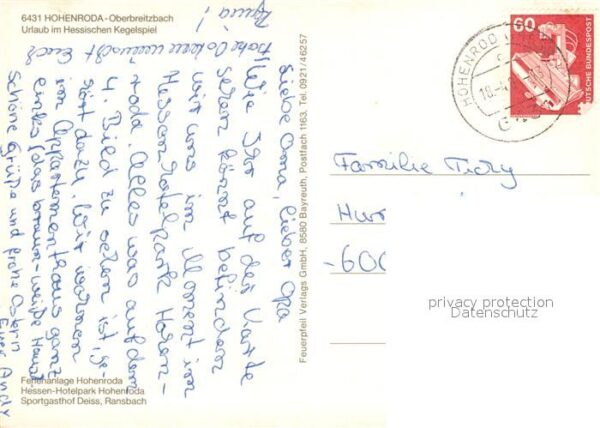 6431 HOHENRODA-Oberbreitzbach
Urlaub im Hessischen Kegelspiel
Liebe Oma, lieber Opa
Wie Ihr auf der Karte
sehen könnt befinden
wir uns im Moment im
Hessen Hotelpark Hohen-
roda. Alles was auf dem
4. Bild zu sehen ist, ge-
hört dazu. Wir wohnen
im Appartementhaus ganz
links (das braun-weiße Haus)
Schöne Grüße und frohe Ostern
Euer Andy
Frohe Ostern wünscht Euch
Feuerpfeil Verlags GmbH, 8580 Bayreuth, Postfach 1163, Tel. 0921/46257
Ferienanlage Hohenroda
Hessen-Hotelpark Hohenroda
Sportgasthof Deiss, Ransbach
HOHENROD
60
DEUTSCHE BUNDESPOST
Familie Tichy
-600
privacy protection
Datenschutz